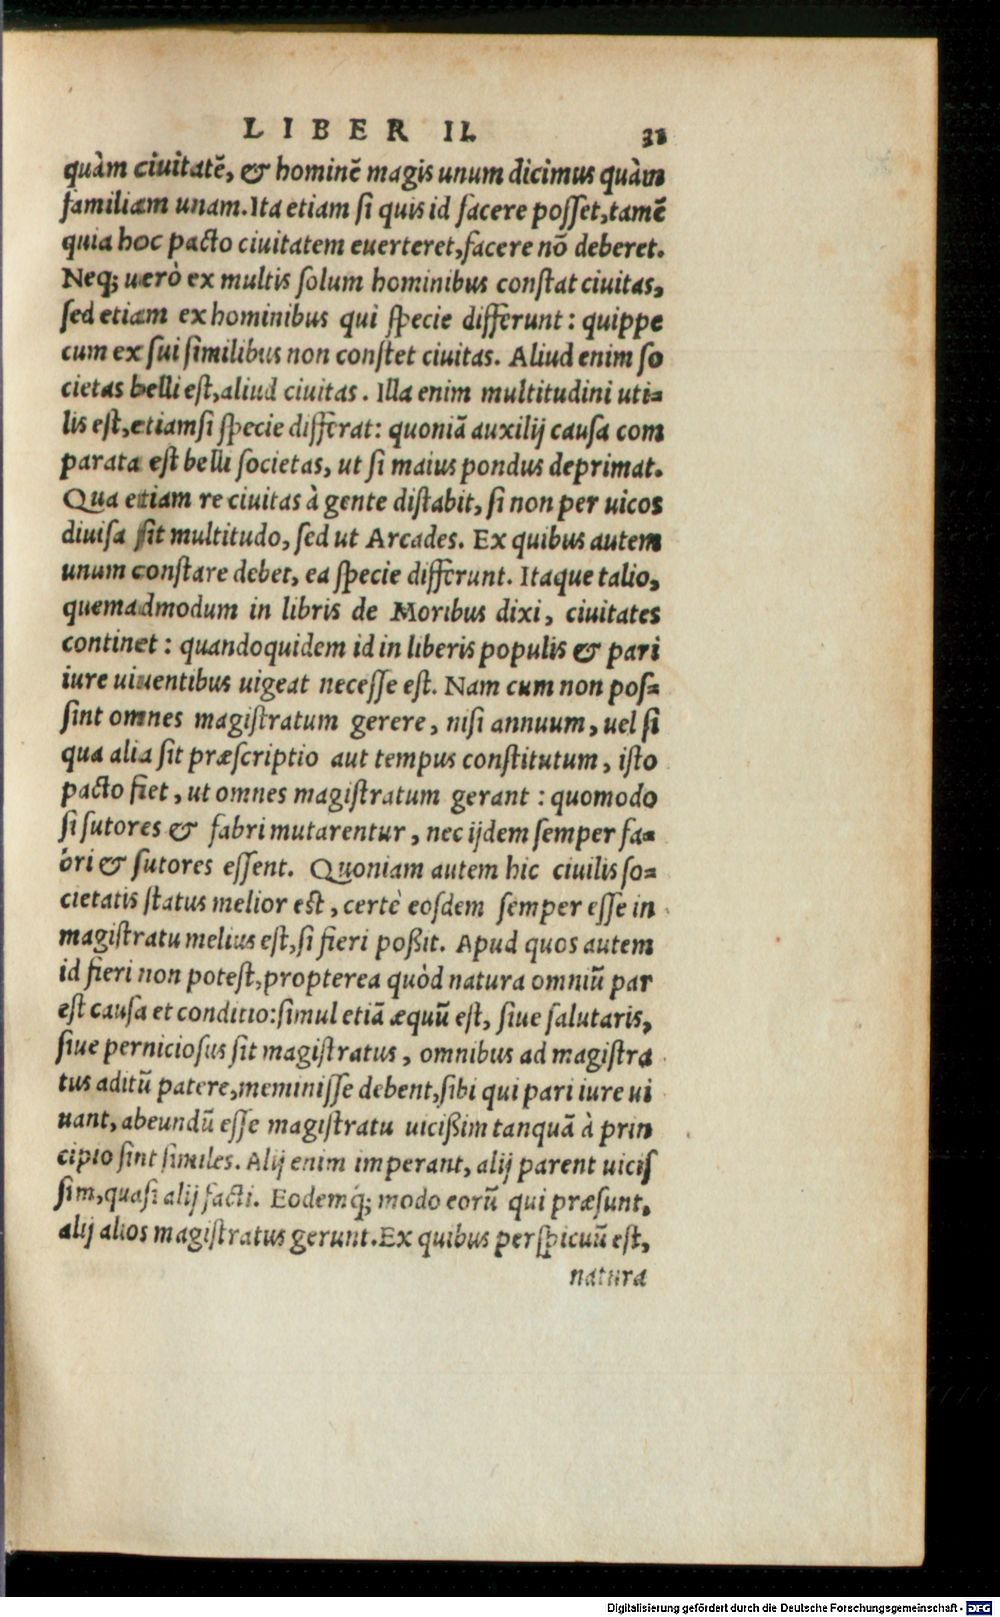 LIBER II. 31
quàm ciuitatẽ, & hominẽ magis unum dicimus quàm
familiam unam. Ita etiam si quis id facere posset, tamẽ
quia hoc pacto ciuitatem euerteret, facere nõ deberet.
Neq; uerò ex multis solum hominibus constat ciuitas,
sed etiam ex hominibus qui specie differunt: quippe
cum ex sui similibus non constet ciuitas. Aliud enim so
cietas belli est, aliud ciuitas. Illa enim multitudini uti-
lis est, etiamsi specie differat: quoniã auxilij causa com
parata est belli societas, ut si maius pondus deprimat.
Qua etiam re ciuitas à gente distabit, si non per uicos
diuisa sit multitudo, sed ut Arcades. Ex quibus autem
unum constare debet, ea specie differunt. Itaque talio,
quemadmodum in libris de Moribus dixi, ciuitates
continet: quandoquidem id in liberis populis & pari
iure uiuentibus uigeat necesse est. Nam cum non pos-
sint omnes magistratum gerere, nisi annuum, uel si
qua alia sit præscriptio aut tempus constitutum, isto
pacto fiet, ut omnes magistratum gerant: quomodo
si sutores & fabri mutarentur, nec ijdem semper fa-
bri & sutores essent. Quoniam autem hic ciuilis so-
cietatis status melior est, certè eosdem semper esse in
magistratu melius est, si fieri poßit. Apud quos autem
id fieri non potest, propterea quòd natura omniũ par
est causa et conditio: simul etiã æquũ est, siue salutaris,
siue perniciosus sit magistratus, omnibus ad magistra
tus aditũ patere, meminisse debent, sibi qui pari iure ui
uant, abeundũ esse magistratu uicißim tanquã à prin
cipio sint similes. Alij enim imperant, alij parent uicis
sim, quasi alij facti. Eodemq́; modo eorũ qui præsunt,
alij alios magistratus gerunt. Ex quibus perspicuũ est,
natura
Digitalisierung gefördert durch die Deutsche Forschungsgemeinschaft - DFG